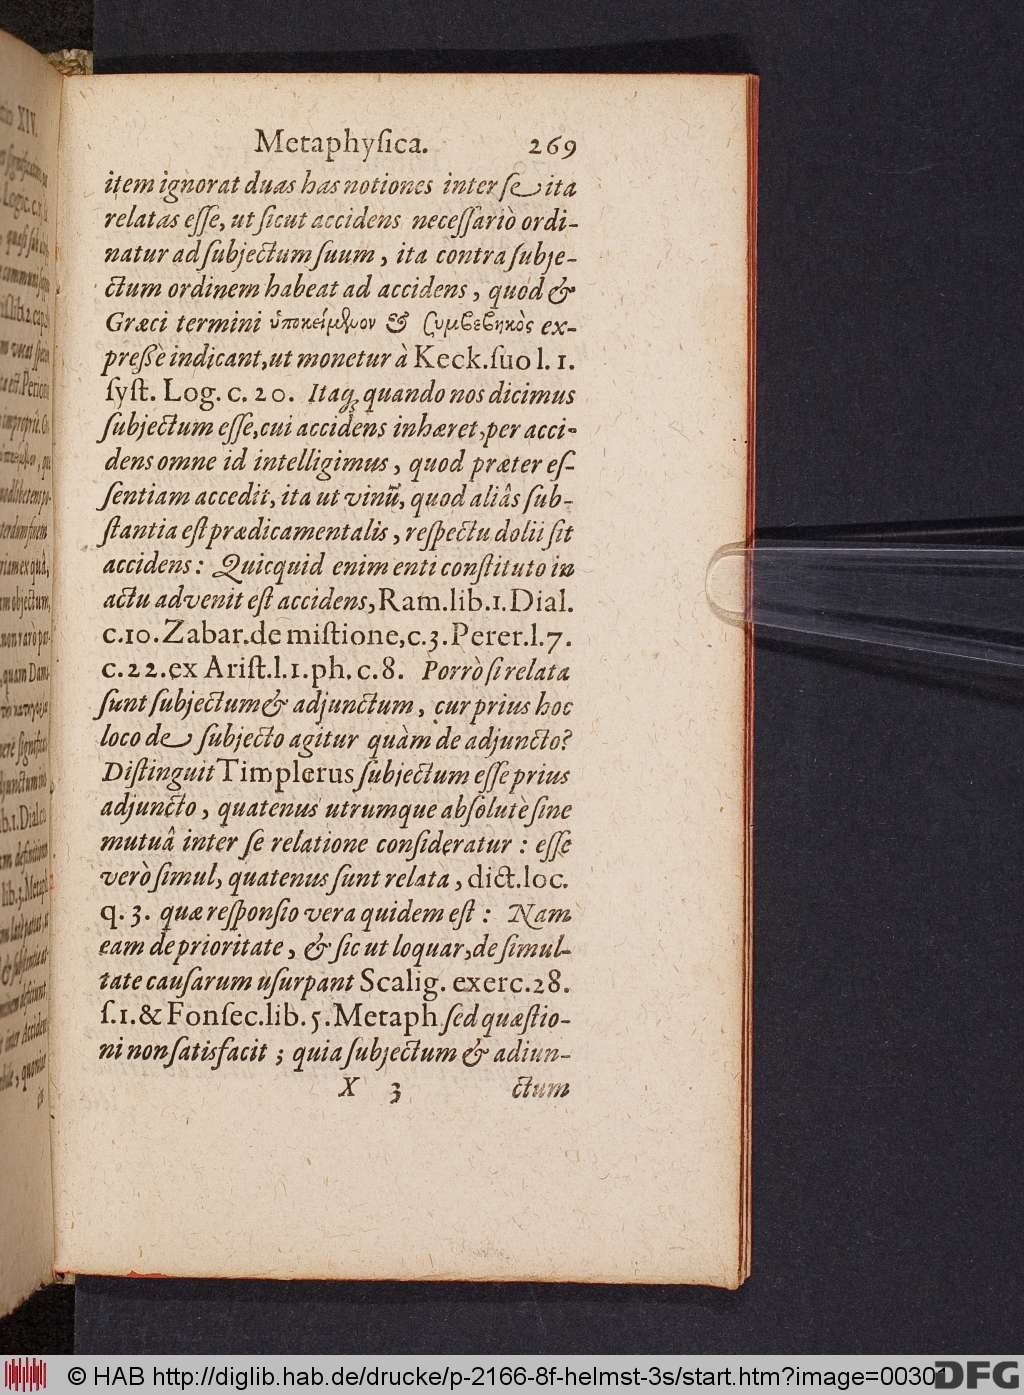 Metaphyſica. 269
item ignorat duas has notiones inter ſe ita
relatas eſſe, ut ſicut accidens neceſſariò ordi-
natur ad ſubjectum ſuum, ita contra ſubje-
ctum ordinem habeat ad accidens, quod &
Græci termini ὑποκείμενον & συμβεβηκὸς ex-
preſſè indicant, ut monetur à Keck. ſuo l. 1.
ſyſt. Log. c. 20. Itaq; quando nos dicimus
ſubjectum eſſe, cui accidens inhæret, per acci-
dens omne id intelligimus, quod præter eſ-
ſentiam accedit, ita ut vinū, quod aliâs ſub-
ſtantia eſt prædicamentalis, reſpectu dolii ſit
accidens: Quicquid enim enti conſtituto in
actu advenit eſt accidens, Ram. lib. 1. Dial.
c. 10. Zabar. de miſtione, c. 3. Perer. l. 7.
c. 22. ex Ariſt. l. 1. ph. c. 8. Porrò ſi relata
ſunt ſubjectum & adjunctum, cur prius hoc
loco de ſubjecto agitur quàm de adjuncto?
Diſtinguit Timplerus ſubjectum eſſe prius
adjuncto, quatenus utrumque abſolutè ſine
mutuâ inter ſe relatione conſideratur: eſſe
verò ſimul, quatenus ſunt relata, dict. loc.
q. 3. quæ reſponſio vera quidem eſt: Nam
eam de prioritate, & ſic ut loquar, de ſimul-
tate cauſarum uſurpant Scalig. exerc. 28.
ſ. 1. & Fonſec. lib. 5. Metaph ſed quæſtio-
ni non ſatisfacit; quia ſubjectum & adiun-
X 3 ctum
© HAB http://diglib.hab.de/drucke/p-2166-8f-helmst-3s/start.htm?image=00301
DFG